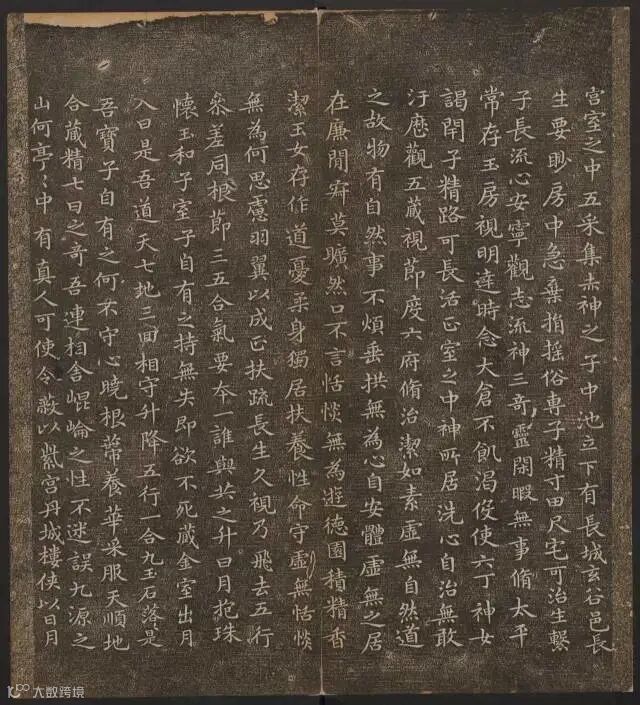 宫室之中五采集赤神之子中池立下有長城玄谷邑長
生要眇房中急棄捐搖俗專子精寸田尺宅可治生繫
子長流心安寧觀志流神三奇靈閑暇無事脩太平
常存玉房視明達時念大倉不飢渴役使六丁神女
謁閉子精路可長活正室之中神所居洗心自治無敢
汙歷觀五藏視節度六府脩治潔如素虛無自然道
之故物有自然事不煩垂拱無為心自安體虛無之居
在廉間寂莫曠然口不言恬惔無為遊德園積精香
潔玉女存作道憂柔身獨居扶養性命守虛無恬惔
無為何思慮羽翼以成正扶疏長生久視乃飛去五行
參差同根節三五合氣要本一誰與共之升日月抱珠
懷玉和子室子自有之持無失即欲不死藏金室出月
入日是吾道天七地三回相守升降五行一合九玉石落是
吾寶子自有之何不守心曉根蒂養華采服天順地
合藏精七日之奇吾連相舍崐崘之性不迷誤九源之
山何亭〻中有真人可使令蔽以紫宫丹城樓俠以日月
大数跨境